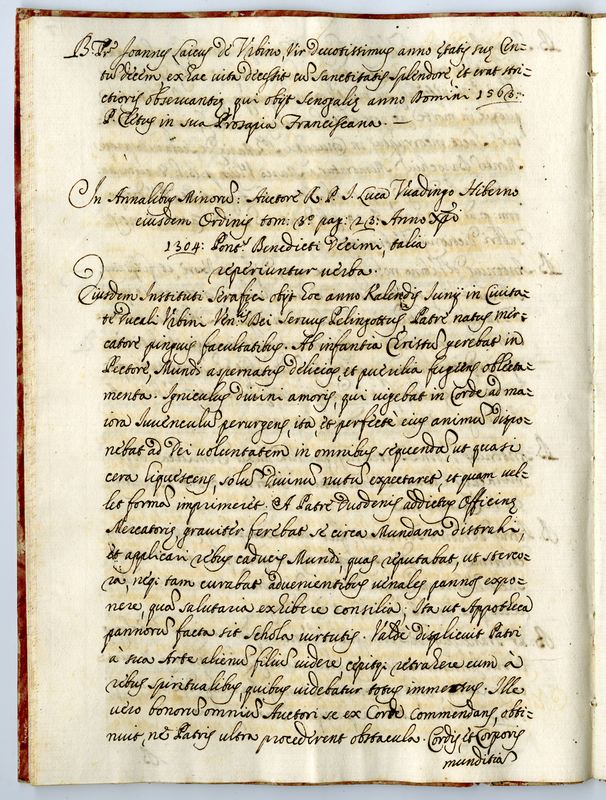 B. Fr. Joannes Laicus de Urbino, Vir devotissimus anno ętatis suę Cen-
tu decem ex hac vita decessit cu Sanctitatis splendore, et erat stri-
ctioris observantię, qui obijt Senogalię anno Domini 1363:
P. Cletus in sua Prosapia Franciscana. —
In Annalibus Minoru: Auctore R. P. F. Luca Vuadingo Hiberno
eiusdem Ordinis tom: 3º pag: 23: Anno Xpi
1304: Pont. Benedicti Decimi, talia
reperiuntur verba.
Eiusdem Instituti Serafici obijt hoc anno Kalendis Junij in Civita-
te Ducali Urbini Ven. Dei Servus Pelingottus Patre natus mer-
catore pinguis facultatibus. Ab infantia Christu gerebat in
Pectore, Mundi aspernatus delicias, et puerilia fugiens oblecta-
menta. Igniculus divini amoris, qui vigebat in Corde ad ma-
iora Iuvenculu perurgens, ita, et perfectè eius animu dispo-
nebat ad Dei voluntatem in omnibus sequenda, ut quasi
cera liquescens, solu Divinu nutu expectaret, et quam vel-
let forma imprimeret. A Patre Duodenis addictus Officinę
Mercatoris, gravitèr ferebat se circa Mundana distrahi,
et applicari rebus caducis Mundi, quas reputabat, ut sterco-
ra, neq; tam curabat advenientibus venales pannos expo-
nere, qua salutaria exhibere consilia. Ita ut Appotheca
pannoru facta sit Schola virtutis. Valdè displicuit Patri
à sua Arte alienu filiu videre cępitq; retrahere eum à
rebus spiritualibus, quibus videbatur totus immersus. Ille
vero bonoru omniu Auctori se ex Corde commendans, obti-
nuit, ne Patris ultra procederent obstacula. Cordis, et Corporis
munditia